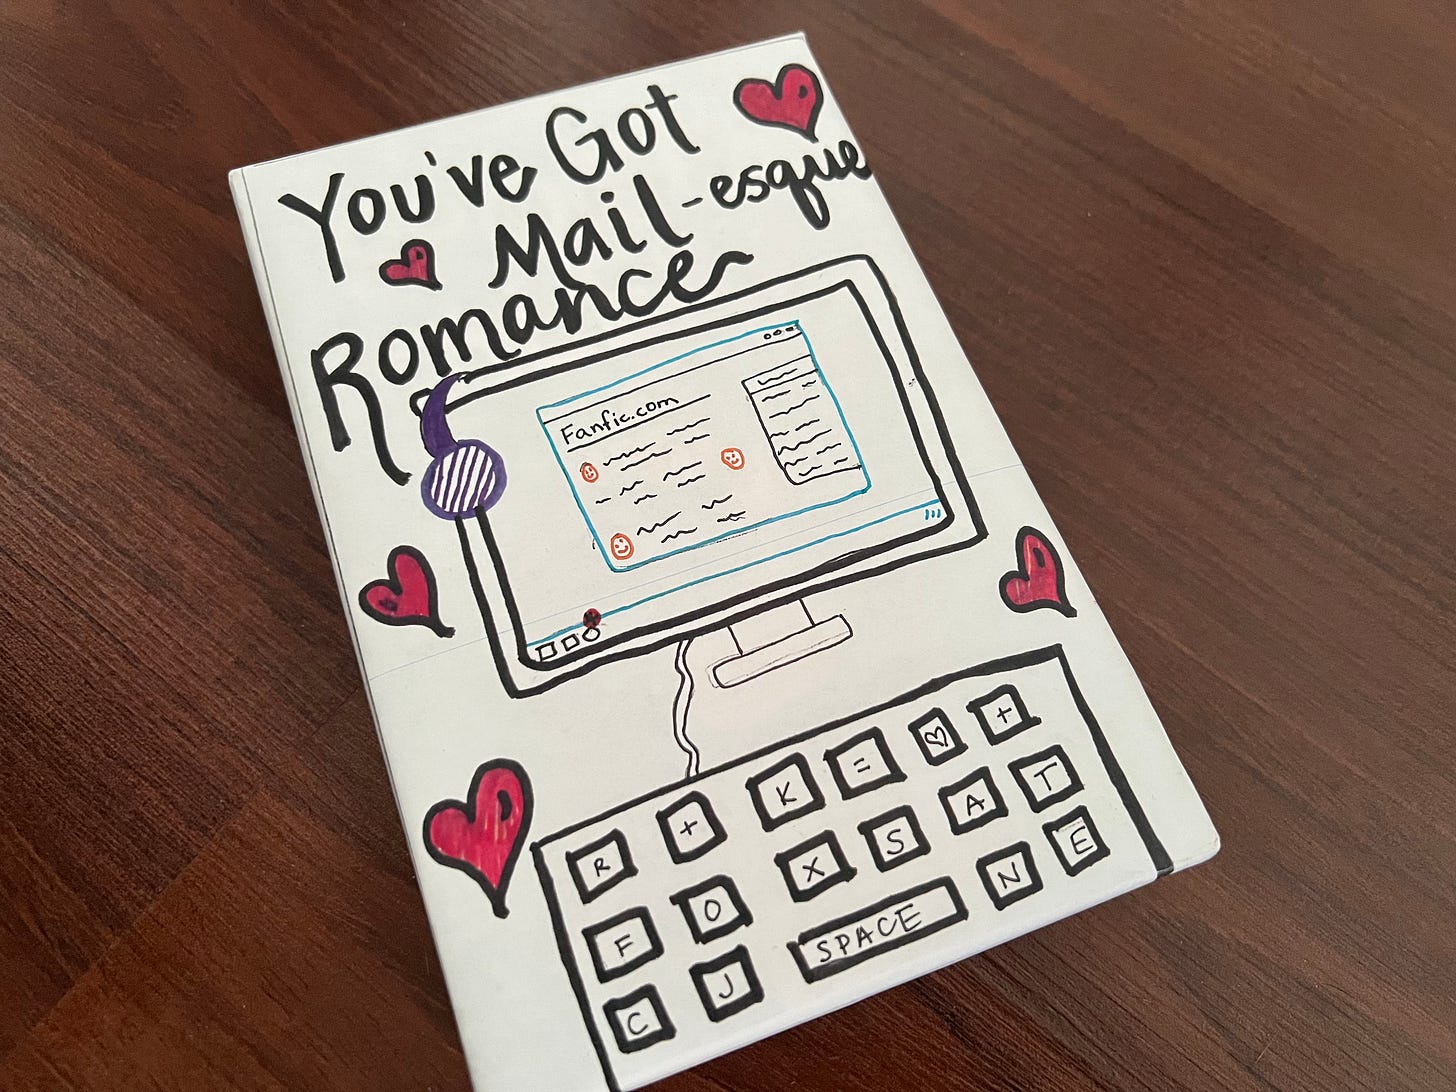 You've Got
Mail-esque
Romance
Fanfic.com
R + K = ♡ +
F O X S A T
C J SPACE N E